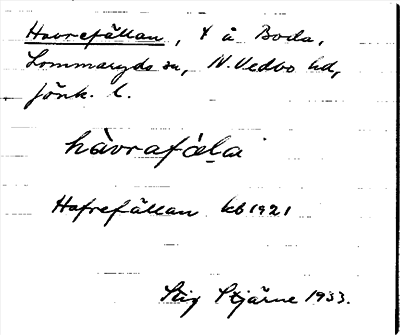 Havrefällan, t å Boda,
Lommaryds sn, N. Vedbo hd,
Jönk. l.
hàvrafäla
Hafrefällan kb 1921
Stig Stjärne 1933.